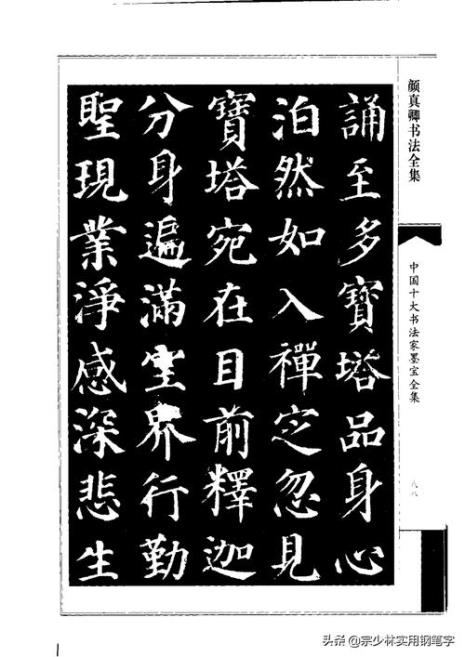 誦至多寶塔品身心
泊然如入禪定忽見
寶塔宛在目前釋迦
分身遍滿空界行勤
聖現業淨感深悲生
颜真卿书法全集
中国十大书法家墨宝全集
八八
头条 @宗少林实用钢笔字